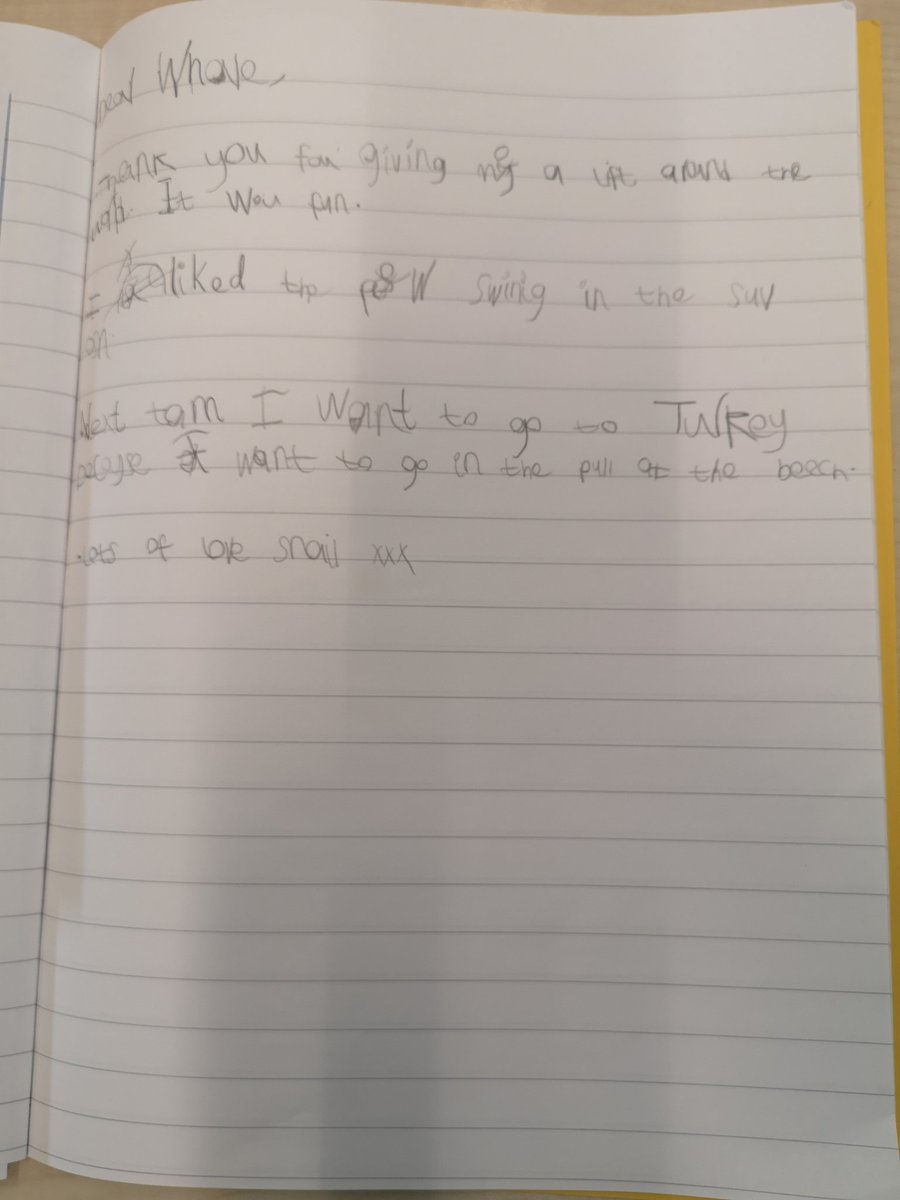 Dear Whale,
Thank you for giving me a lift around the
It was fun.
I liked the swing in the
on.
Next tam I want to go to Turkey
becayse I want to go in the pull at the beech.
Lots of love snail xxx